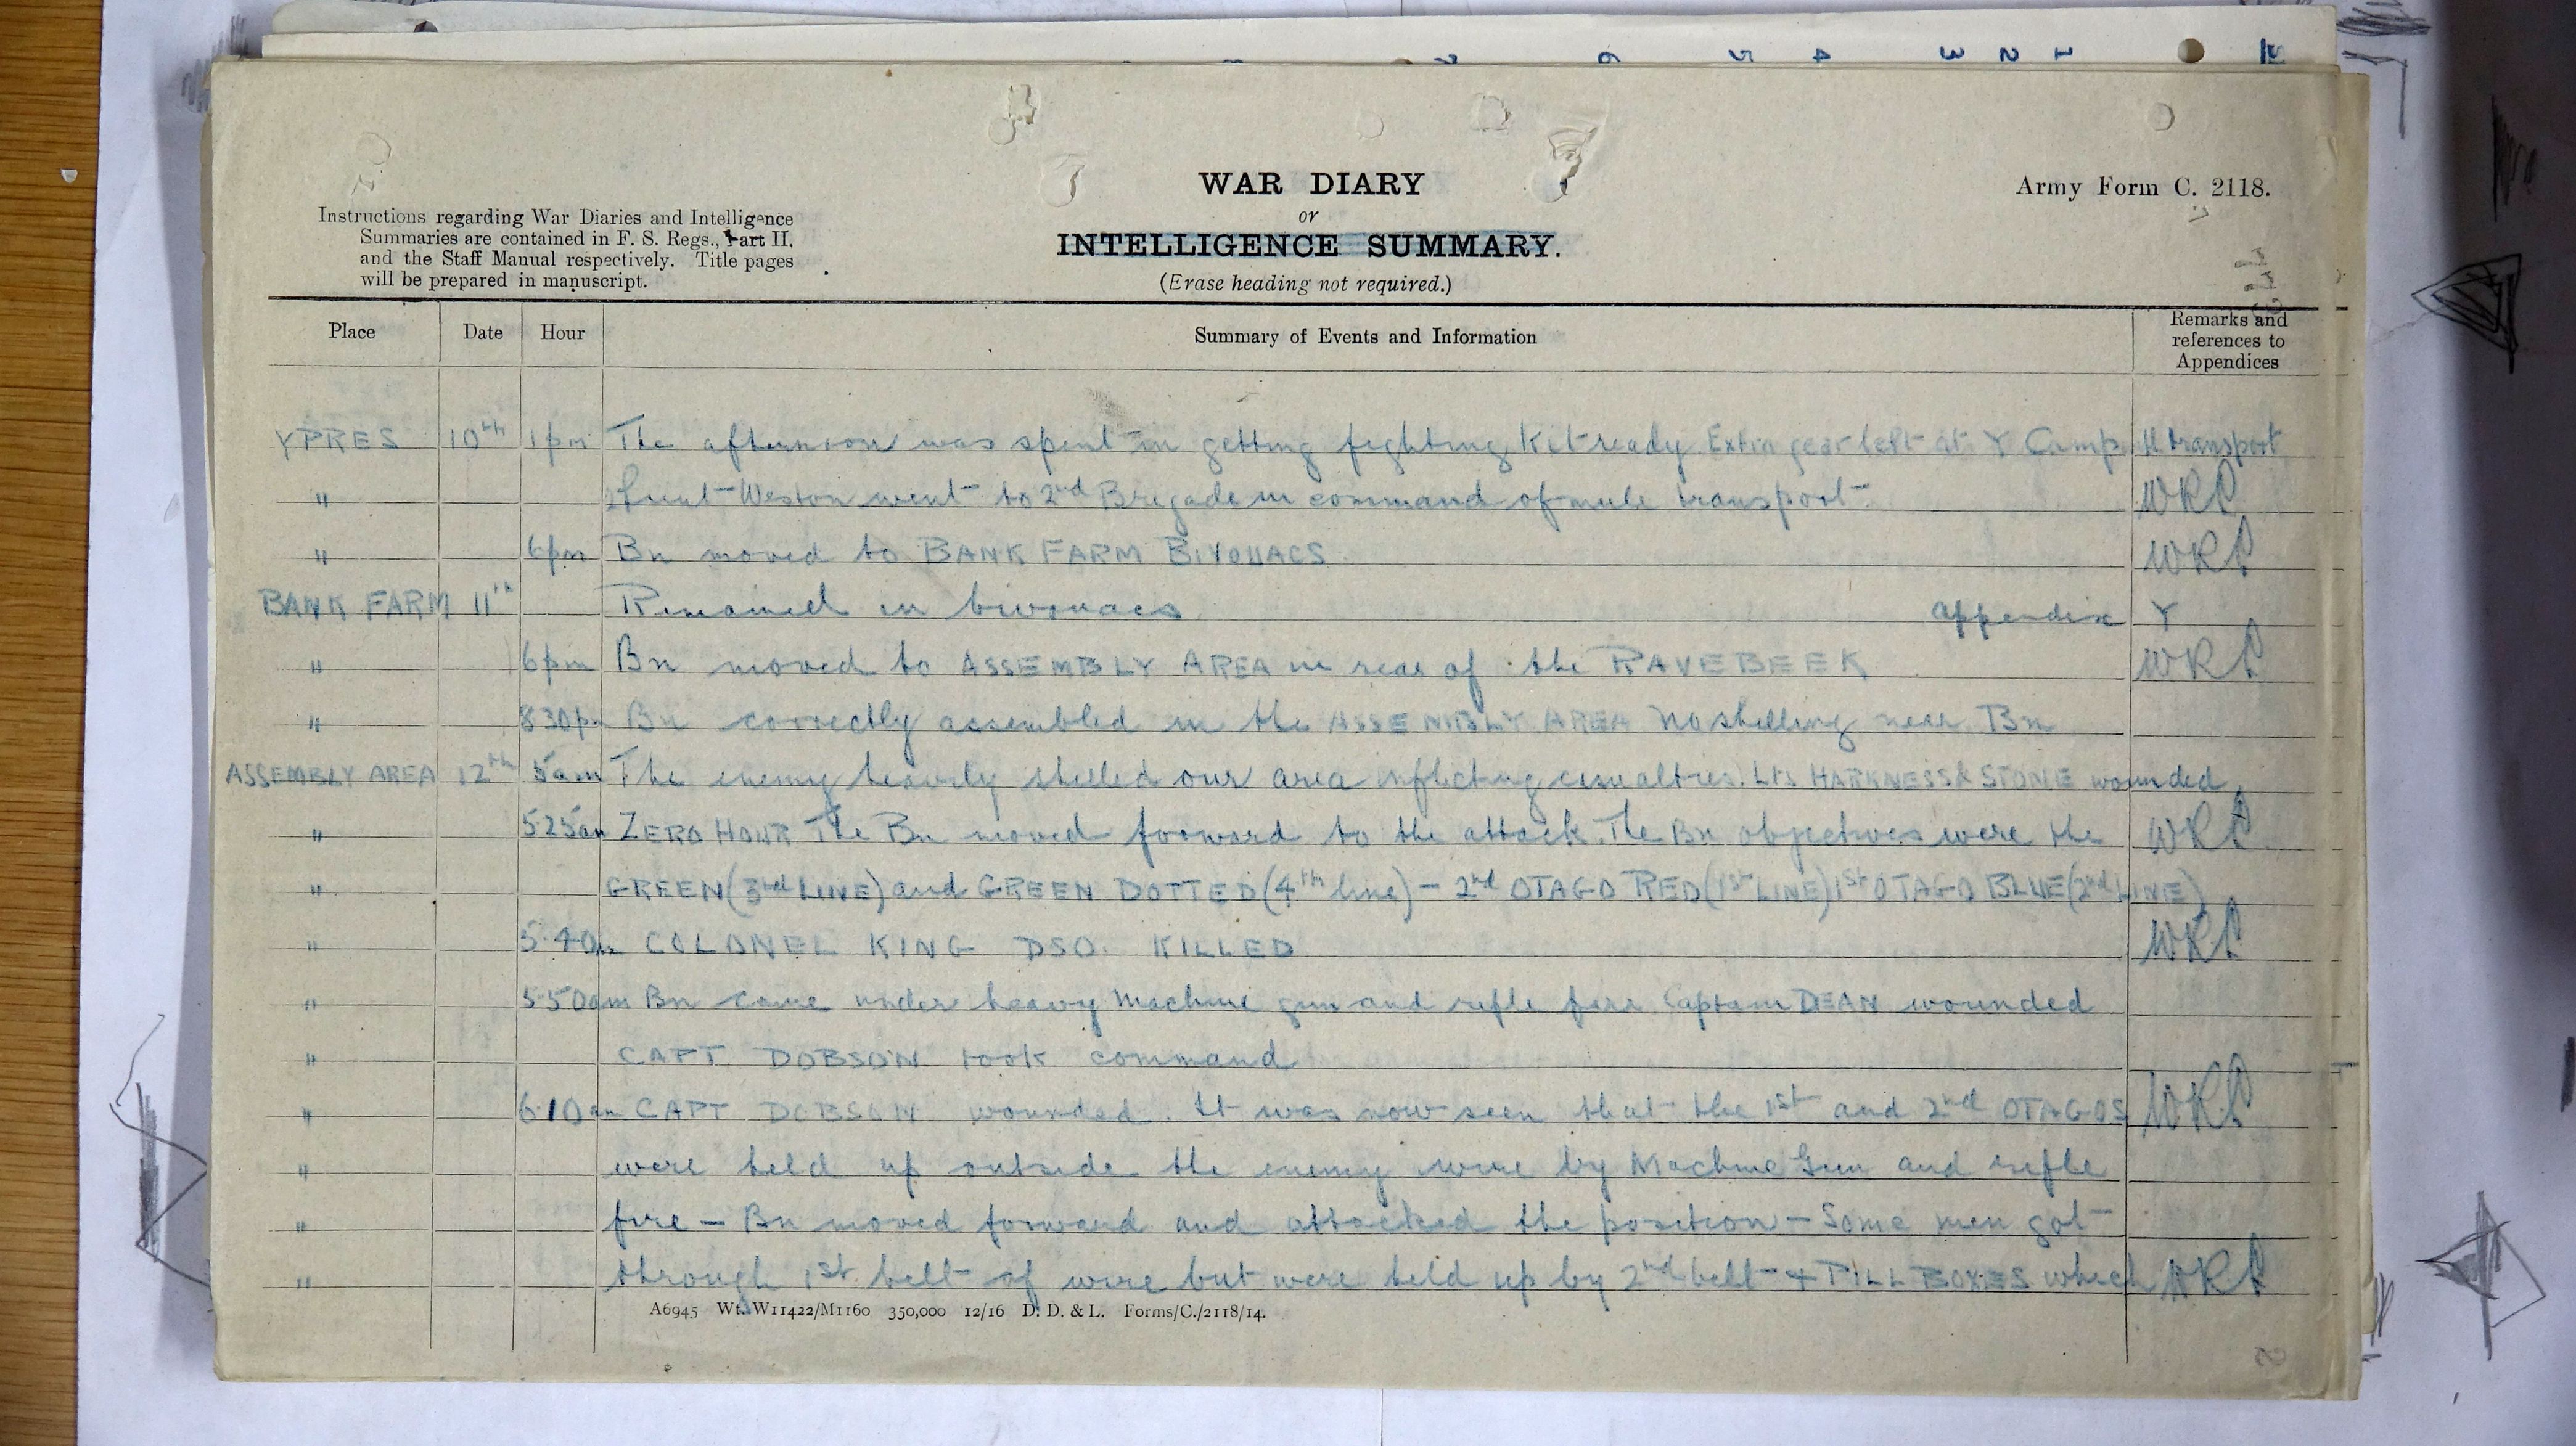 1 2 3 4 5 6
WAR DIARY
or
INTELLIGENCE SUMMARY.
(Erase heading not required.)
Army Form C. 2118.
Instructions regarding War Diaries and Intelligence
Summaries are contained in F. S. Regs., Part II,
and the Staff Manual respectively. Title pages
will be prepared in manuscript.
Place Date Hour Summary of Events and Information Remarks and references to Appendices
YPRES 10th 1pm The afternoon was spent in getting fighting kit ready. Extra gear left at Y Camp transport
" Lieut Weston went to 2nd Brigade in command of mule transport. WRP
" 6pm Bn moved to BANK FARM BIVOUACS WRP
BANK FARM 11th Remained in bivouacs Appendix Y
" 6pm Bn moved to ASSEMBLY AREA in rear of the RAVEBEEK WRP
" 8 30pm Bn correctly assembled in the ASSEMBLY AREA No shelling near Bn
ASSEMBLY AREA 12th 5am The enemy heavily shelled our area inflicting casualties. Lts HARKNESS & STONE wounded
" 5.25am ZERO HOUR The Bn moved forward to the attack. The Bn objectives were the WRP
" GREEN (3rd LINE) and GREEN DOTTED (4th line) - 2nd OTAGO RED (1st LINE) 1st OTAGO BLUE (2nd LINE)
" 5.40am COLONEL KING DSO. KILLED WRP
" 5.50am Bn came under heavy Machine gun and rifle fire Captain DEAN wounded
" CAPT. DOBSON took command
" 6.10am CAPT DOBSON wounded. It was now seen that the 1st and 2nd OTAGOS WRP
" were held up outside the enemy wire by Machine Gun and rifle
" fire - Bn moved forward and attacked the position - Some men got
" through 1st belt of wire but were held up by 2nd belt + PILL BOXES which WRP
A6945 Wt. W11422/M1160 350,000 12/16 D. D. & L. Forms/C./2118/14.